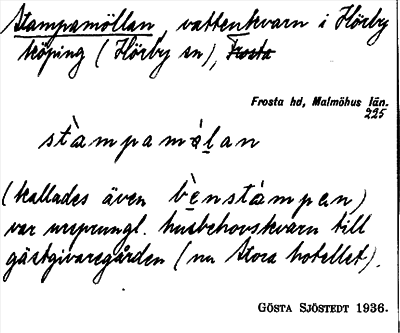 Stampamöllan, vattenkvarn i Hörby
köping (Hörby sn), Frosta
Frosta hd, Malmöhus län.
225
stàmpamə̀lan
(kallades även bènstámpen)
var ursprungl. husbehovskvarn till
gästgivaregården (nu Stora hotellet).
GÖSTA SJÖSTEDT 1936.